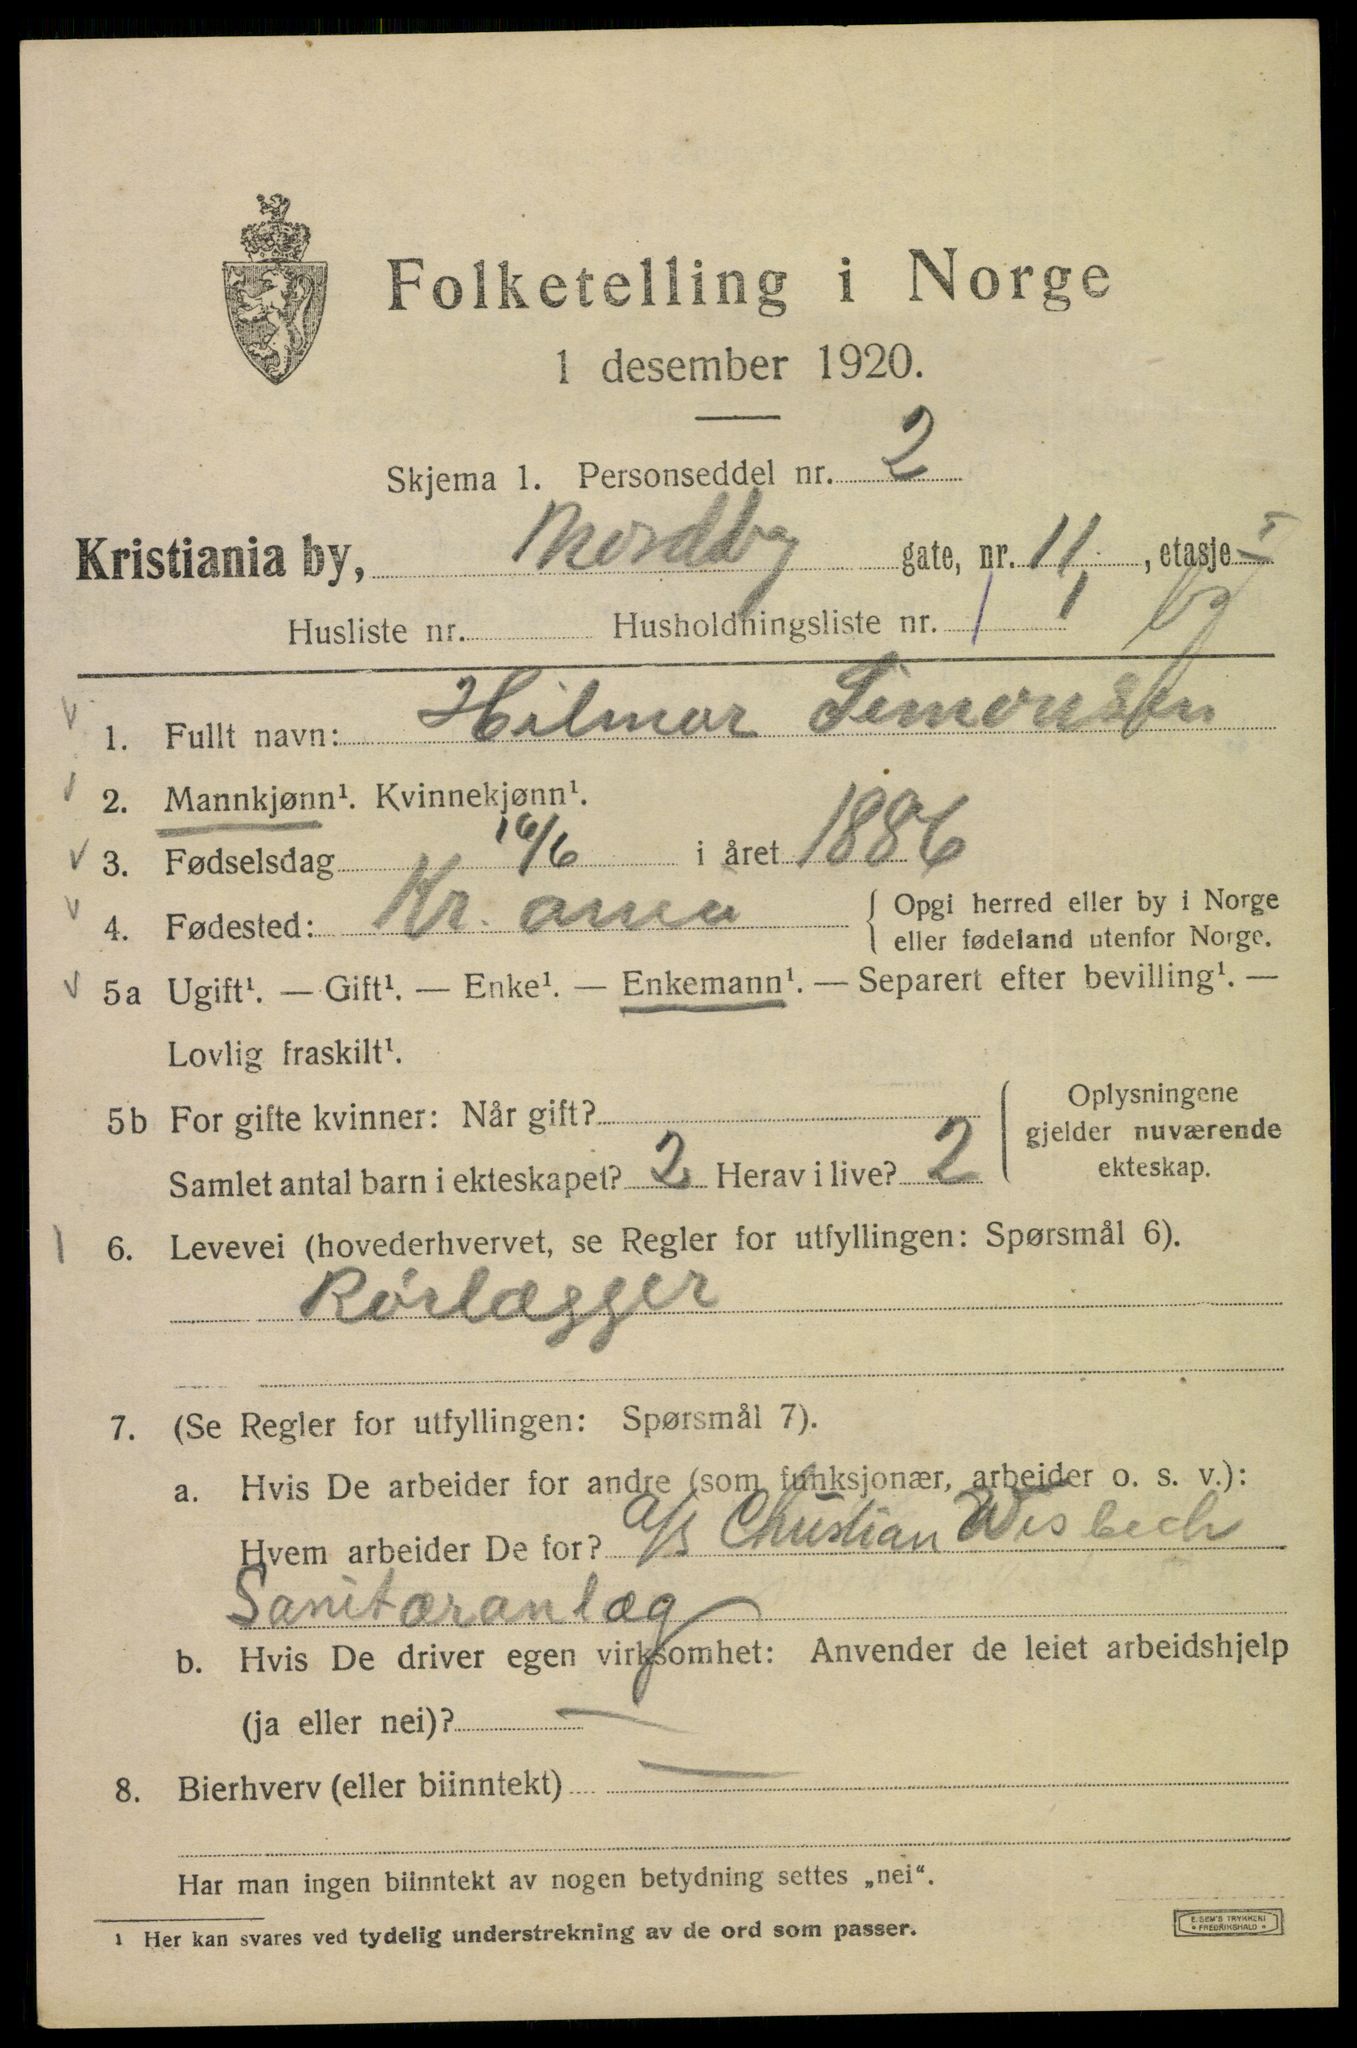 Folketelling i Norge
1 desember 1920.
Skjema 1. Personseddel nr. 2
Kristiania by, Nordby gate, nr. 11, etasje I
Husliste nr. Husholdningsliste nr. 1 1 bg
1. Fullt navn: Hilmar Simonsen
2. Mannkjønn¹. Kvinnekjønn¹.
3. Fødselsdag 16/6 i året 1886
4. Fødested: Kr. ania { Opgi herred eller by i Norge
eller fødeland utenfor Norge.
5a Ugift¹. — Gift¹. — Enke¹. — Enkemann¹. — Separert efter bevilling¹. —
Lovlig fraskilt¹.
5b For gifte kvinner: Når gift? { Oplysningene
gjelder nuværende
ekteskap.
Samlet antal barn i ekteskapet? 2 Herav i live? 2
6. Levevei (hovederhvervet, se Regler for utfyllingen: Spørsmål 6).
Rörlægger
7. (Se Regler for utfyllingen: Spørsmål 7).
a. Hvis De arbeider for andre (som funksjonær, arbeider o. s. v.):
Hvem arbeider De for? A/S Christian Wisbech
Sanitæranlæg
b. Hvis De driver egen virksomhet: Anvender de leiet arbeidshjelp
(ja eller nei)? —
8. Bierhverv (eller biinntekt) —
Har man ingen biinntekt av nogen betydning settes „nei“.
¹ Her kan svares ved tydelig understrekning av de ord som passer.
E. SEM'S TRYKKERI
* FREDRIKSHALD *